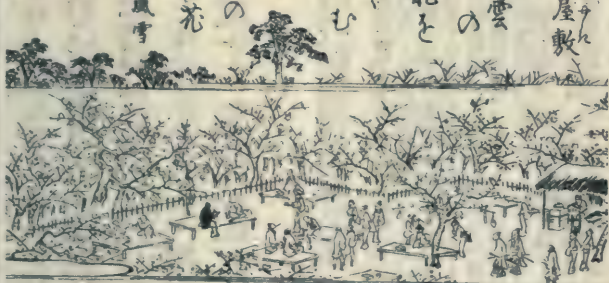 屋敷
雲
の
を
む
の
花
嵐雪